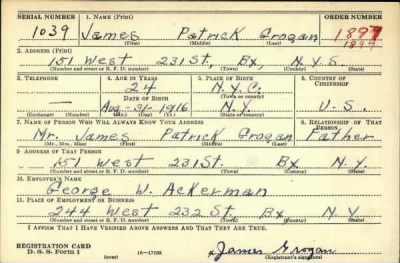 SERIAL NUMBER 1. NAME (Print) ORDER NUMBER
1039 James Patrick Grogan 1897
(First) (Middle) (Last) 1894
2. ADDRESS (Print)
151 West 231 St, Bx, N.Y.S.
(Number and street or R. F. D. number) (Town) (County) (State)
3. TELEPHONE 4. AGE IN YEARS 5. PLACE OF BIRTH 6. COUNTRY OF CITIZENSHIP
24 N.Y.C.
DATE OF BIRTH (Town or county)
— Aug-31-1916 N.Y. U.S.
(Exchange) (Number) (Mo.) (Day) (Yr.) (State or country)
7. NAME OF PERSON WHO WILL ALWAYS KNOW YOUR ADDRESS 8. RELATIONSHIP OF THAT PERSON
Mr. James Patrick Grogan Father
(Mr., Mrs., Miss) (First) (Middle) (Last)
9. ADDRESS OF THAT PERSON
151 West 231 St. Bx N.Y.
(Number and street or R. F. D. number) (Town) (County) (State)
10. EMPLOYER'S NAME
George W. Ackerman
11. PLACE OF EMPLOYMENT OR BUSINESS
244 West 232 St. Bx N.Y
(Number and street or R. F. D. number) (Town) (County) (State)
I AFFIRM THAT I HAVE VERIFIED ABOVE ANSWERS AND THAT THEY ARE TRUE.
REGISTRATION CARD
D. S. S. Form 1 (over) 16—17105 x James Grogan
(Registrant's signature)